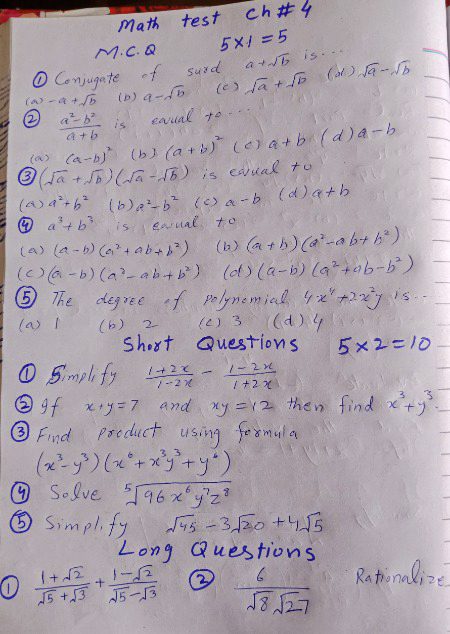 Math test Ch # 4
M.C.Q 5×1=5
① Conjugate of surd a+√b is...
(a) -a+√b (b) a-√b (c) √a+√b (d) √a-√b
② a²-b²/a+b is equal to...
(a) (a-b)² (b) (a+b)² (c) a+b (d) a-b
③ (√a+√b)(√a-√b) is equal to
(a) a²+b² (b) a²-b² (c) a-b (d) a+b
④ a³+b³ is equal to
(a) (a-b)(a²+ab+b²) (b) (a+b)(a²-ab+b²)
(c) (a-b)(a²-ab+b²) (d) (a-b)(a²+ab-b²)
⑤ The degree of polynomial 4x⁴+2x²y is..
(a) 1 (b) 2 (c) 3 (d) 4
Short Questions 5×2=10
① Simplify 1+2x/1-2x - 1-2x/1+2x
② If x+y=7 and xy=12 then find x³+y³.
③ Find product using formula
(x³-y³)(x⁶+x³y³+y⁶)
④ Solve ⁵√96x⁶y⁷z⁸
⑤ Simplify √45-3√20+4√5
Long Questions
① 1+√2/√5+√3 + 1-√2/√5-√3 ② 6/√8√27 Rationalize